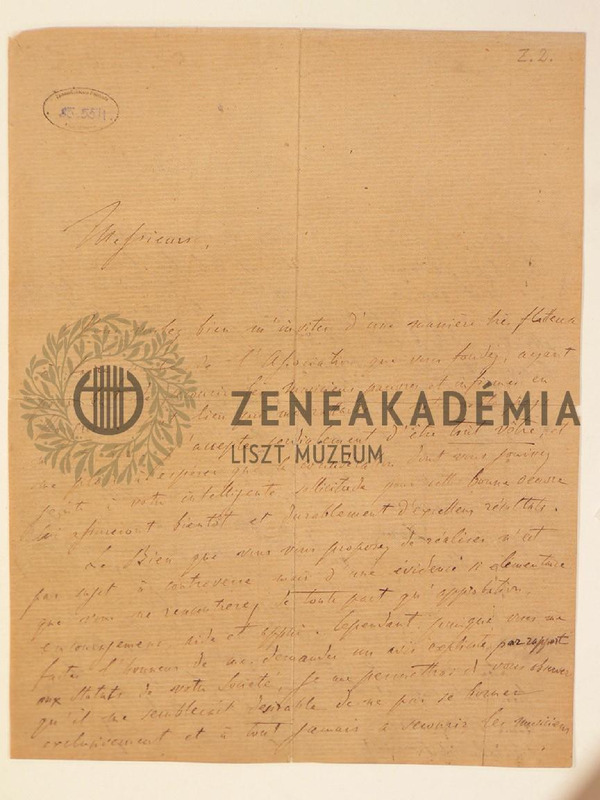 Z. 2.
Messieurs,
bien m'inviter d'une manière très flatteuse
de l'Association que vous fondez, ayant
musiciens pauvres et infirmes en
ZENEAKADÉMIA
LISZT MÚZEUM
j'accepte d'être tout vôtre, et
espérer que dont vous jouirez
joint à votre intelligente sollicitude pour cette bonne oeuvre
lui assureront bientôt et durablement d'excellents résultats.
Le Bien que vous vous proposez de réaliser n'est
pas sujet à controverse mais d'une évidence si élémentaire
que vous ne rencontrerez de toute part qu'approbation,
encouragement aide et appui. Cependant, puisque vous me
faites l'honneur de me demander un avis explicite par rapport
aux Statuts de votre Société, je me permettrai de vous observer
qu'il me sembleroit desirable de ne pas se borner
exclusivement et à tout jamais à secourir les musiciens